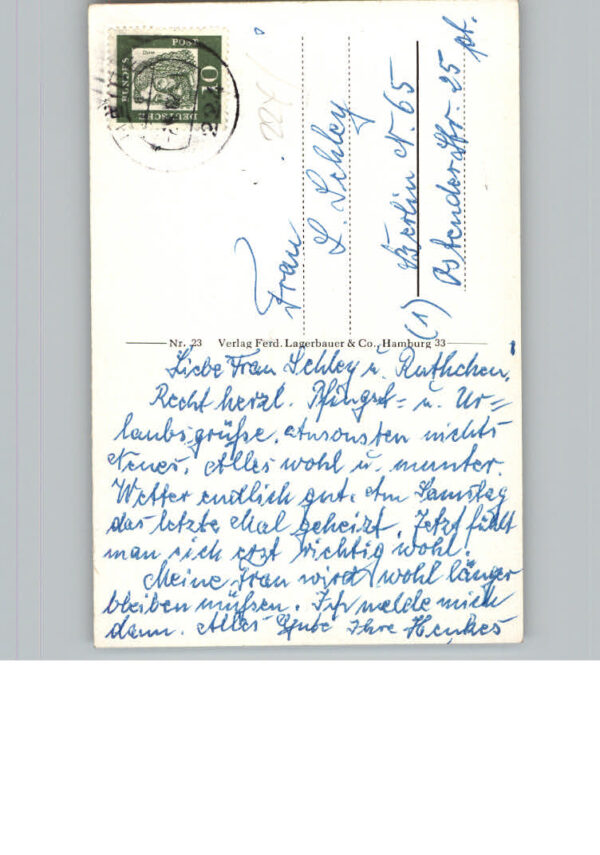 DEUTSCHE
BUNDES
POST
Dürer
10
Frau
L. Schley
(1) Berlin N. 65
Ostenderstr. 25 pt.
Nr. 23 Verlag Ferd. Lagerbauer & Co., Hamburg 33
Liebe Frau Schley u. Ruthchen.
Recht herzl. Pfingst- u. Ur=
laubsgrüße. Ansonsten nichts
Neues. Alles wohl u. munter.
Wetter endlich gut. Am Samstag
das letzte Mal geheizt. Jetzt fühlt
man sich erst richtig wohl.
Meine Frau wird wohl länger
bleiben müßen. Ich melde mich
dann. Alles Gute Ihre Henkes